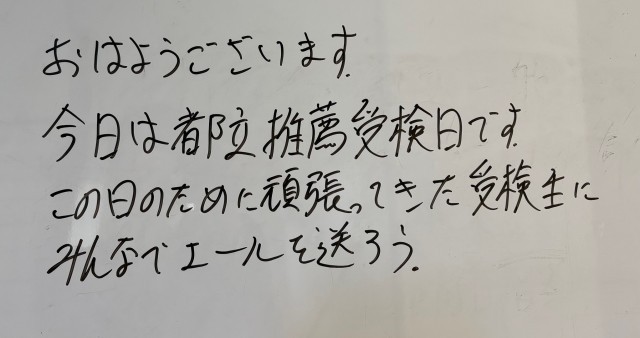 おはようございます.
今日は都立推薦受検日です.
この日のために頑張ってきた受検生に
みんなでエールを送ろう.